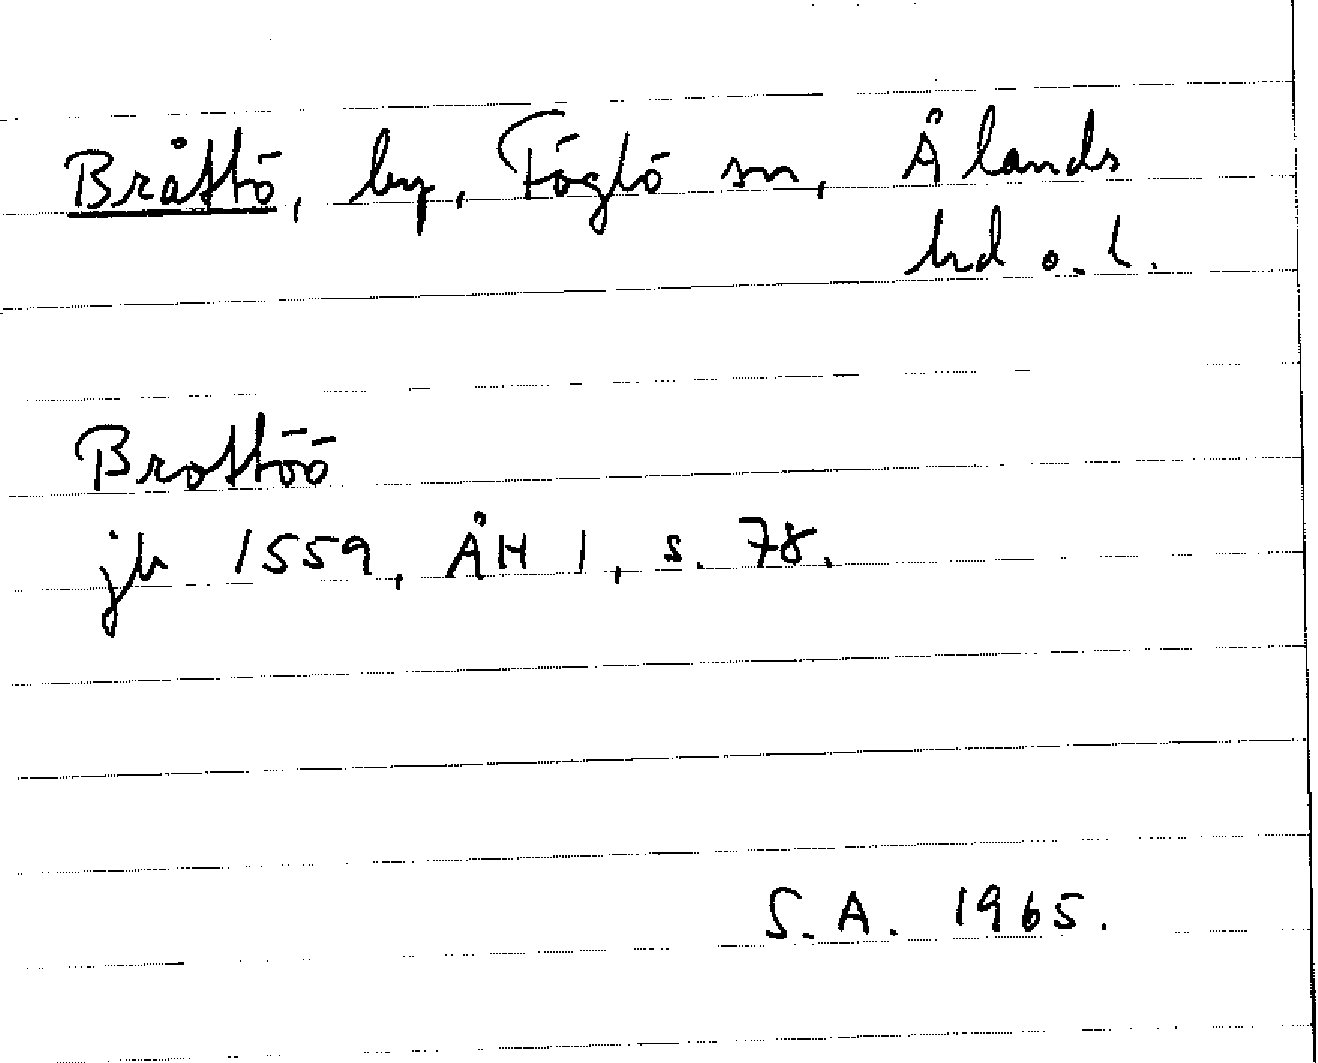 Bråttö, by, Föglö sn, Ålands
hd o. l.
Brottöö
jb 1559, ÅH 1, s. 78.
S.A. 1965.